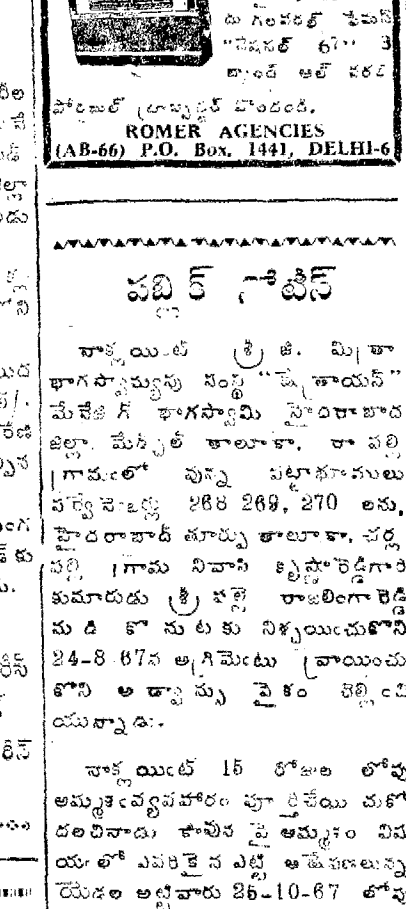 దు గలవరల్డ్ ఫేమస్
"నేషనల్ 67" 3
బ్యాండ్ ఆల్ వరల్డ్
పోర్టబుల్ ట్రాన్సిస్టర్ పొందండి.
ROMER AGENCIES
(AB-66) P.O. Box. 1441, DELHI-6
పబ్లిక్ నోటీస్
నాక్లయింట్ శ్రీ జి. మిత్రా
భాగస్వామ్యపు సంస్థ
మేనేజింగ్ భాగస్వామి హైదరాబాద
జిల్లా. మేడ్చల్ తాలూకా, రా పల్లి
గ్రామంలో వున్న పట్టాభూములు
సర్వే నెంబర్లు 268 269, 270 లను,
హైదరాబాద్ తూర్పు తాలూకా, చర్ల
పల్లి గ్రామ నివాసి కృష్ణారెడ్డిగారి
కుమారుడు శ్రీ రాజలింగారెడ్డి
నుడి కొనుటకు నిశ్చయించుకొని
24-8 67న అగ్రిమెంటు వ్రాయించు
కొని అడ్వాన్సు పైకం చెల్లించి
యున్నాడు.
నాక్లయింట్ 15 రోజుల లోపు
అమ్మకంవ్యవహారం పూర్తిచేయ చుకో
దలచినాడు కావున పై అమ్మకం విష
యంలో ఎవరికైన ఎట్టి ఆక్షేపణలున్న
యెడల అట్టివారు 25-10-67 లోపు